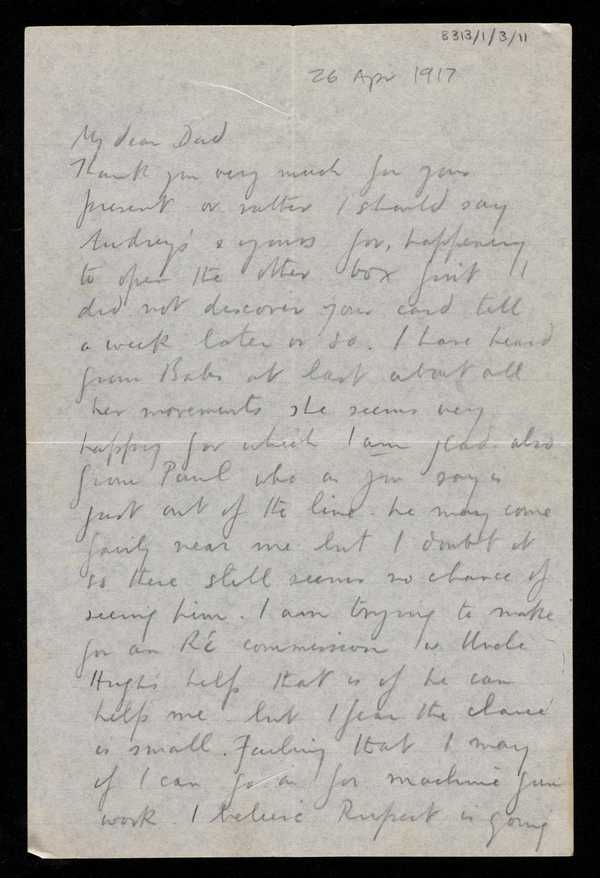 B313/1/3/11
26 Apr 1917
My dear Dad
Thank you very much for your
present or rather I should say
Audrey's & yours for, happening
to open the other box first I
did not discover your card till
a week later or so. I have heard
from Babs at last about all
her movements she seems very
happy for which I am glad also
from Paul who as you say is
just out of the line. he may come
fairly near me but I doubt it
so there still seems no chance of
seeing him. I am trying to make
for an RE commission w Uncle
Hugh's help that is if he can
help me but I fear the chance
is small. Failing that I may
if I can go on for machine gun
work. I believe Rupert is going